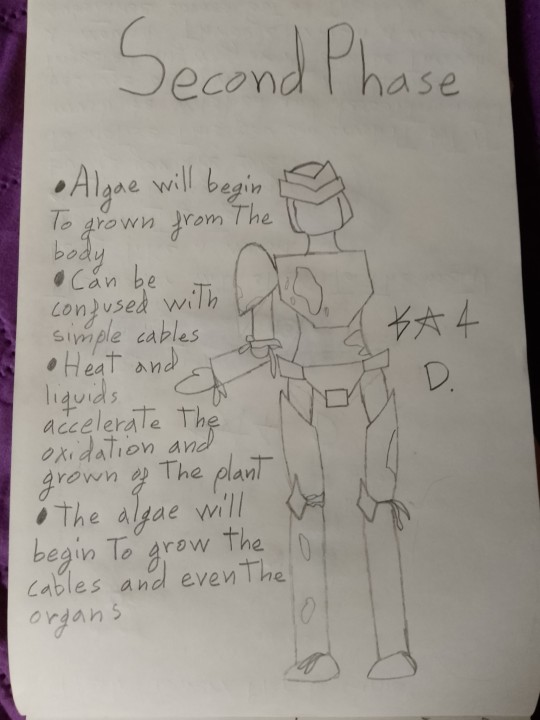 Second Phase
• Algae will begin
To grown from The
body
• Can be
confused with
simple cables
• Heat and
liquids
accelerate The
oxidation and
grown of The plant
• The algae will
begin To grow the
cables and even The
organs
D.